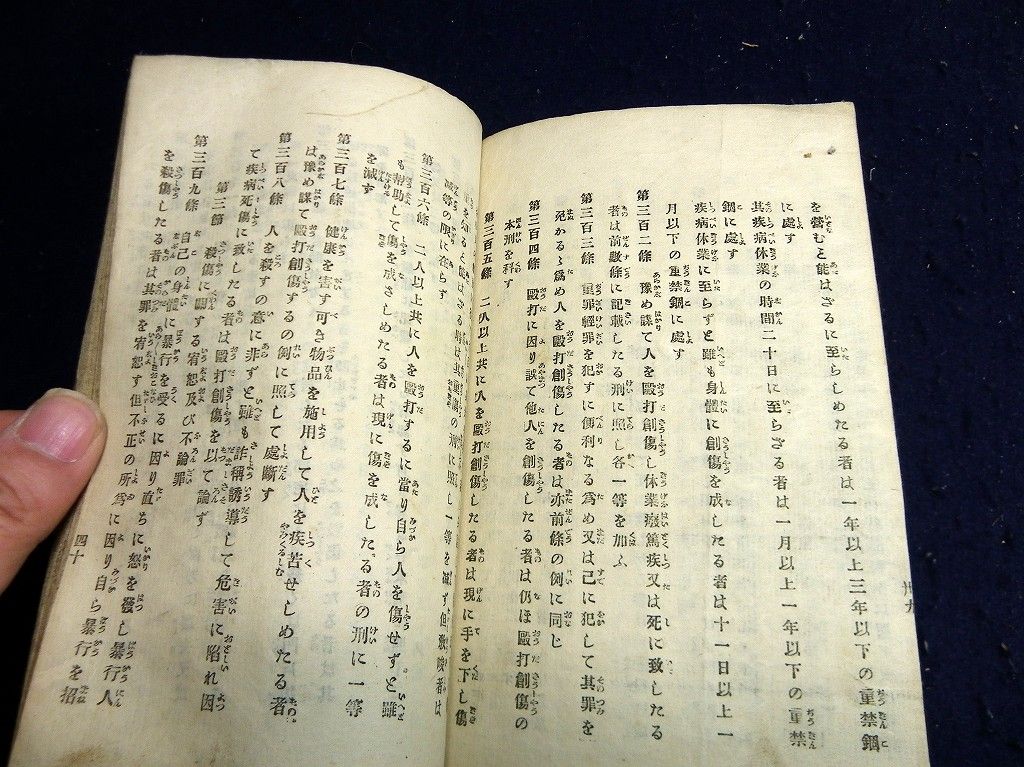 を營むと能はざるに至らしめたる者は一年以上三年以下の重禁錮
に處す
其疾病休業の時間二十日に至らざる者は一月以上一年以下の重禁
錮に處す
疾病休業に至らずと雖も身體に創傷を成したる者は十一日以上一
月以下の重禁錮に處す
第三百二條 豫め謀て人を毆打創傷し休業癈篤疾又は死に致したる
者は前數條に記載したる刑に照し各一等を加ふ
第三百三條 重罪輕罪を犯すに便利なる爲め又は已に犯して其罪を
免かるゝ爲め人を毆打創傷したる者は亦前條の例に同じ
第三百四條 毆打に因り誤て他人を創傷したる者は仍ほ毆打創傷の
本刑を科す
第三百五條 二人以上共に人を毆打創傷したる者は現に手を下し傷
卅九
減等の限に在らず
第三百六條 二人以上共に人を毆打するに當り自ら人を傷せずと雖
も幇助して傷を成さしめたる者は現に傷を成したる者の刑に一等
を減す
第三百七條 健康を害す可き物品を施用して人を疾苦せしめたる者
は豫め謀て毆打創傷するの例に照して處斷す
第三百八條 人を殺すの意に非ずと雖も詐稱誘導して危害に陷れ因
て疾病死傷に致したる者は毆打創傷を以て論ず
第三節 殺傷に關する宥恕及び不論罪
第三百九條 自己の身體に暴行を受るに因り直ちに怒を發し暴行人
を殺傷したる者は其罪を宥恕す但不正の所爲に因り自ら暴行を招
四十